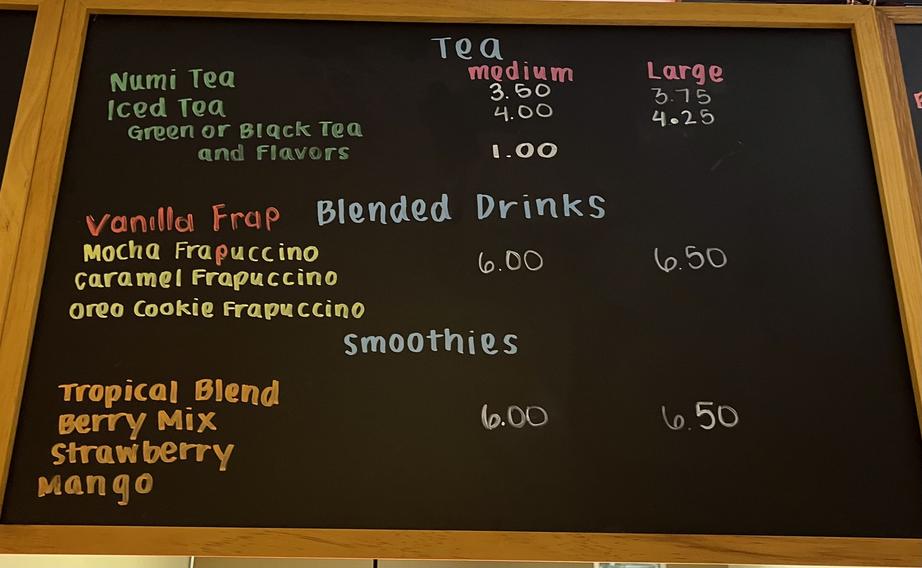 Tea
medium Large
Numi Tea 3.50 3.75
Iced Tea 4.00 4.25
Green or Black Tea
and Flavors 1.00
Blended Drinks
Vanilla Frap
Mocha Frapuccino 6.00 6.50
Caramel Frapuccino
Oreo Cookie Frapuccino
Smoothies
Tropical Blend
Berry Mix 6.00 6.50
Strawberry
Mango